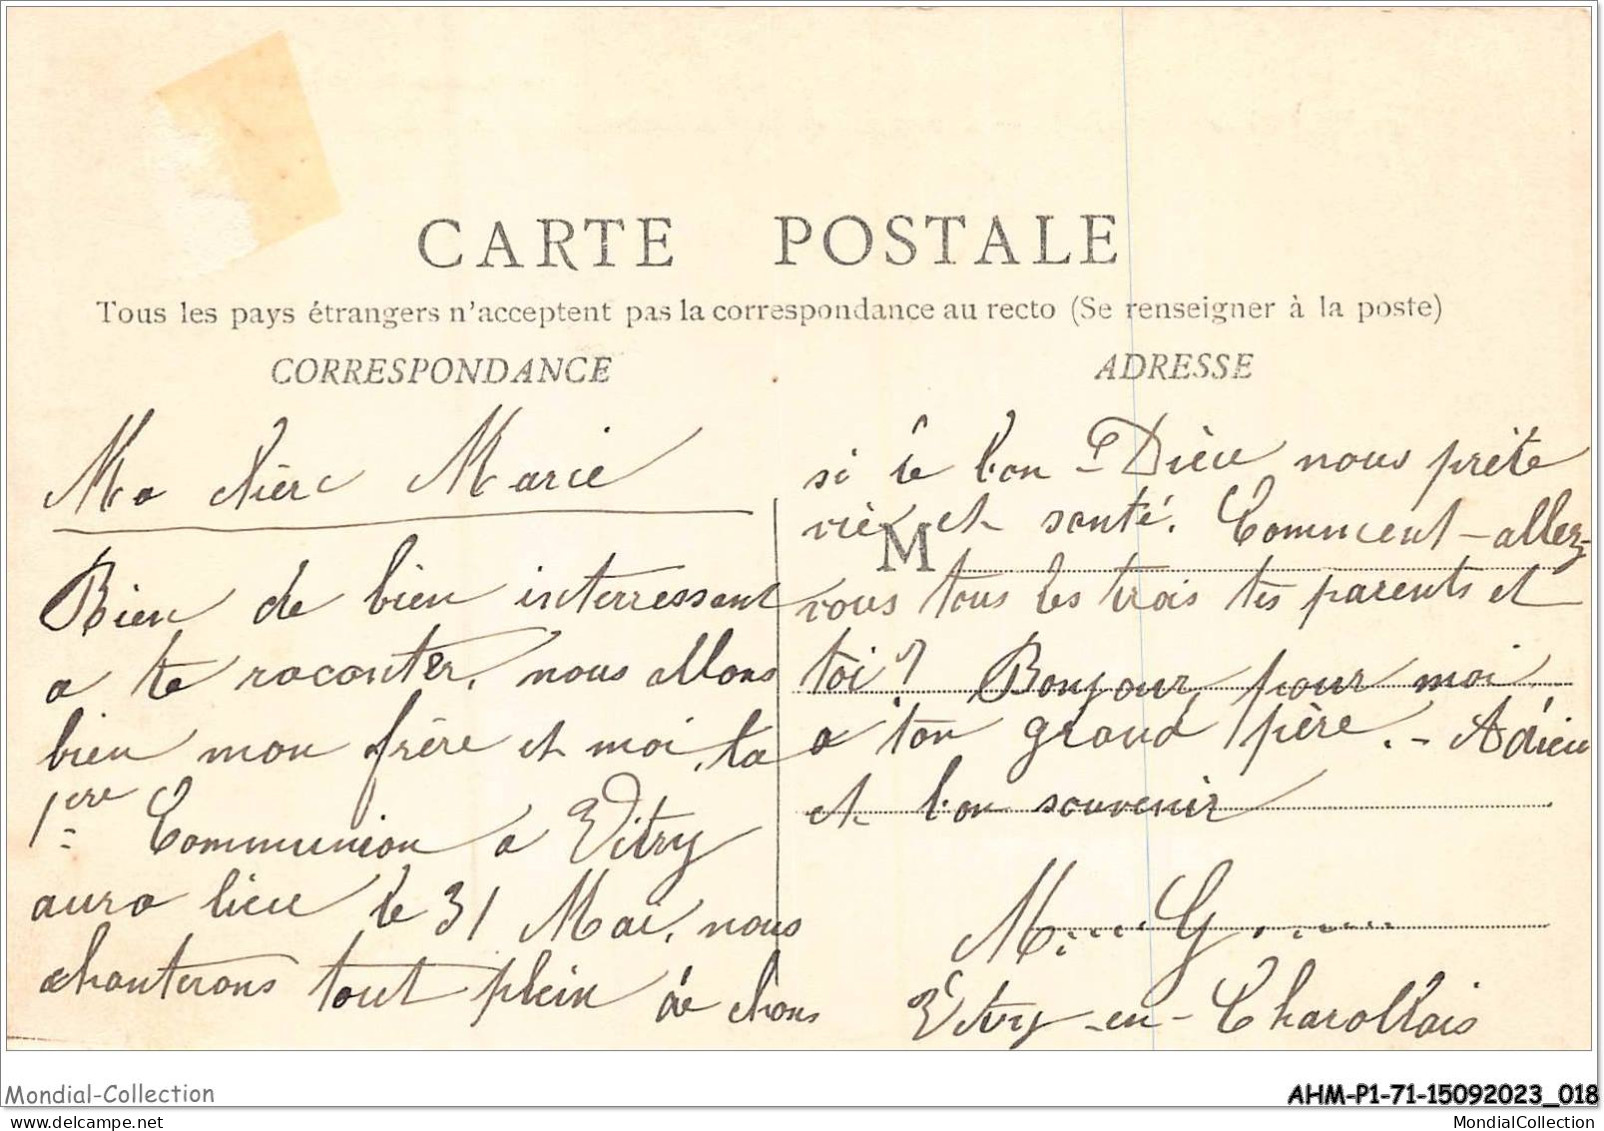 CARTE POSTALE
Tous les pays étrangers n'acceptent pas la correspondance au recto (Se renseigner à la poste)
CORRESPONDANCE
Ma chère Marie
Bien de bien interressant
a te raconter, nous allons
bien mon frère et moi, la
1ère Communion a Vitry
aura lieu le 31 Mai, nous
chanterons tout plein de chons
ADRESSE
si le bon-Dieu nous prête
vie et santé. Comment-allez-
M
vous tous les trois tes parents et
toi? Bonjour, pour moi
a ton grand père.- Adieu
et bon souvenir
M..... G.......
Vitry-en-Charollais
Mondial-Collection
AHM-P1-71-15092023_018
mondialcollection.delcampe.net
MondialCollection